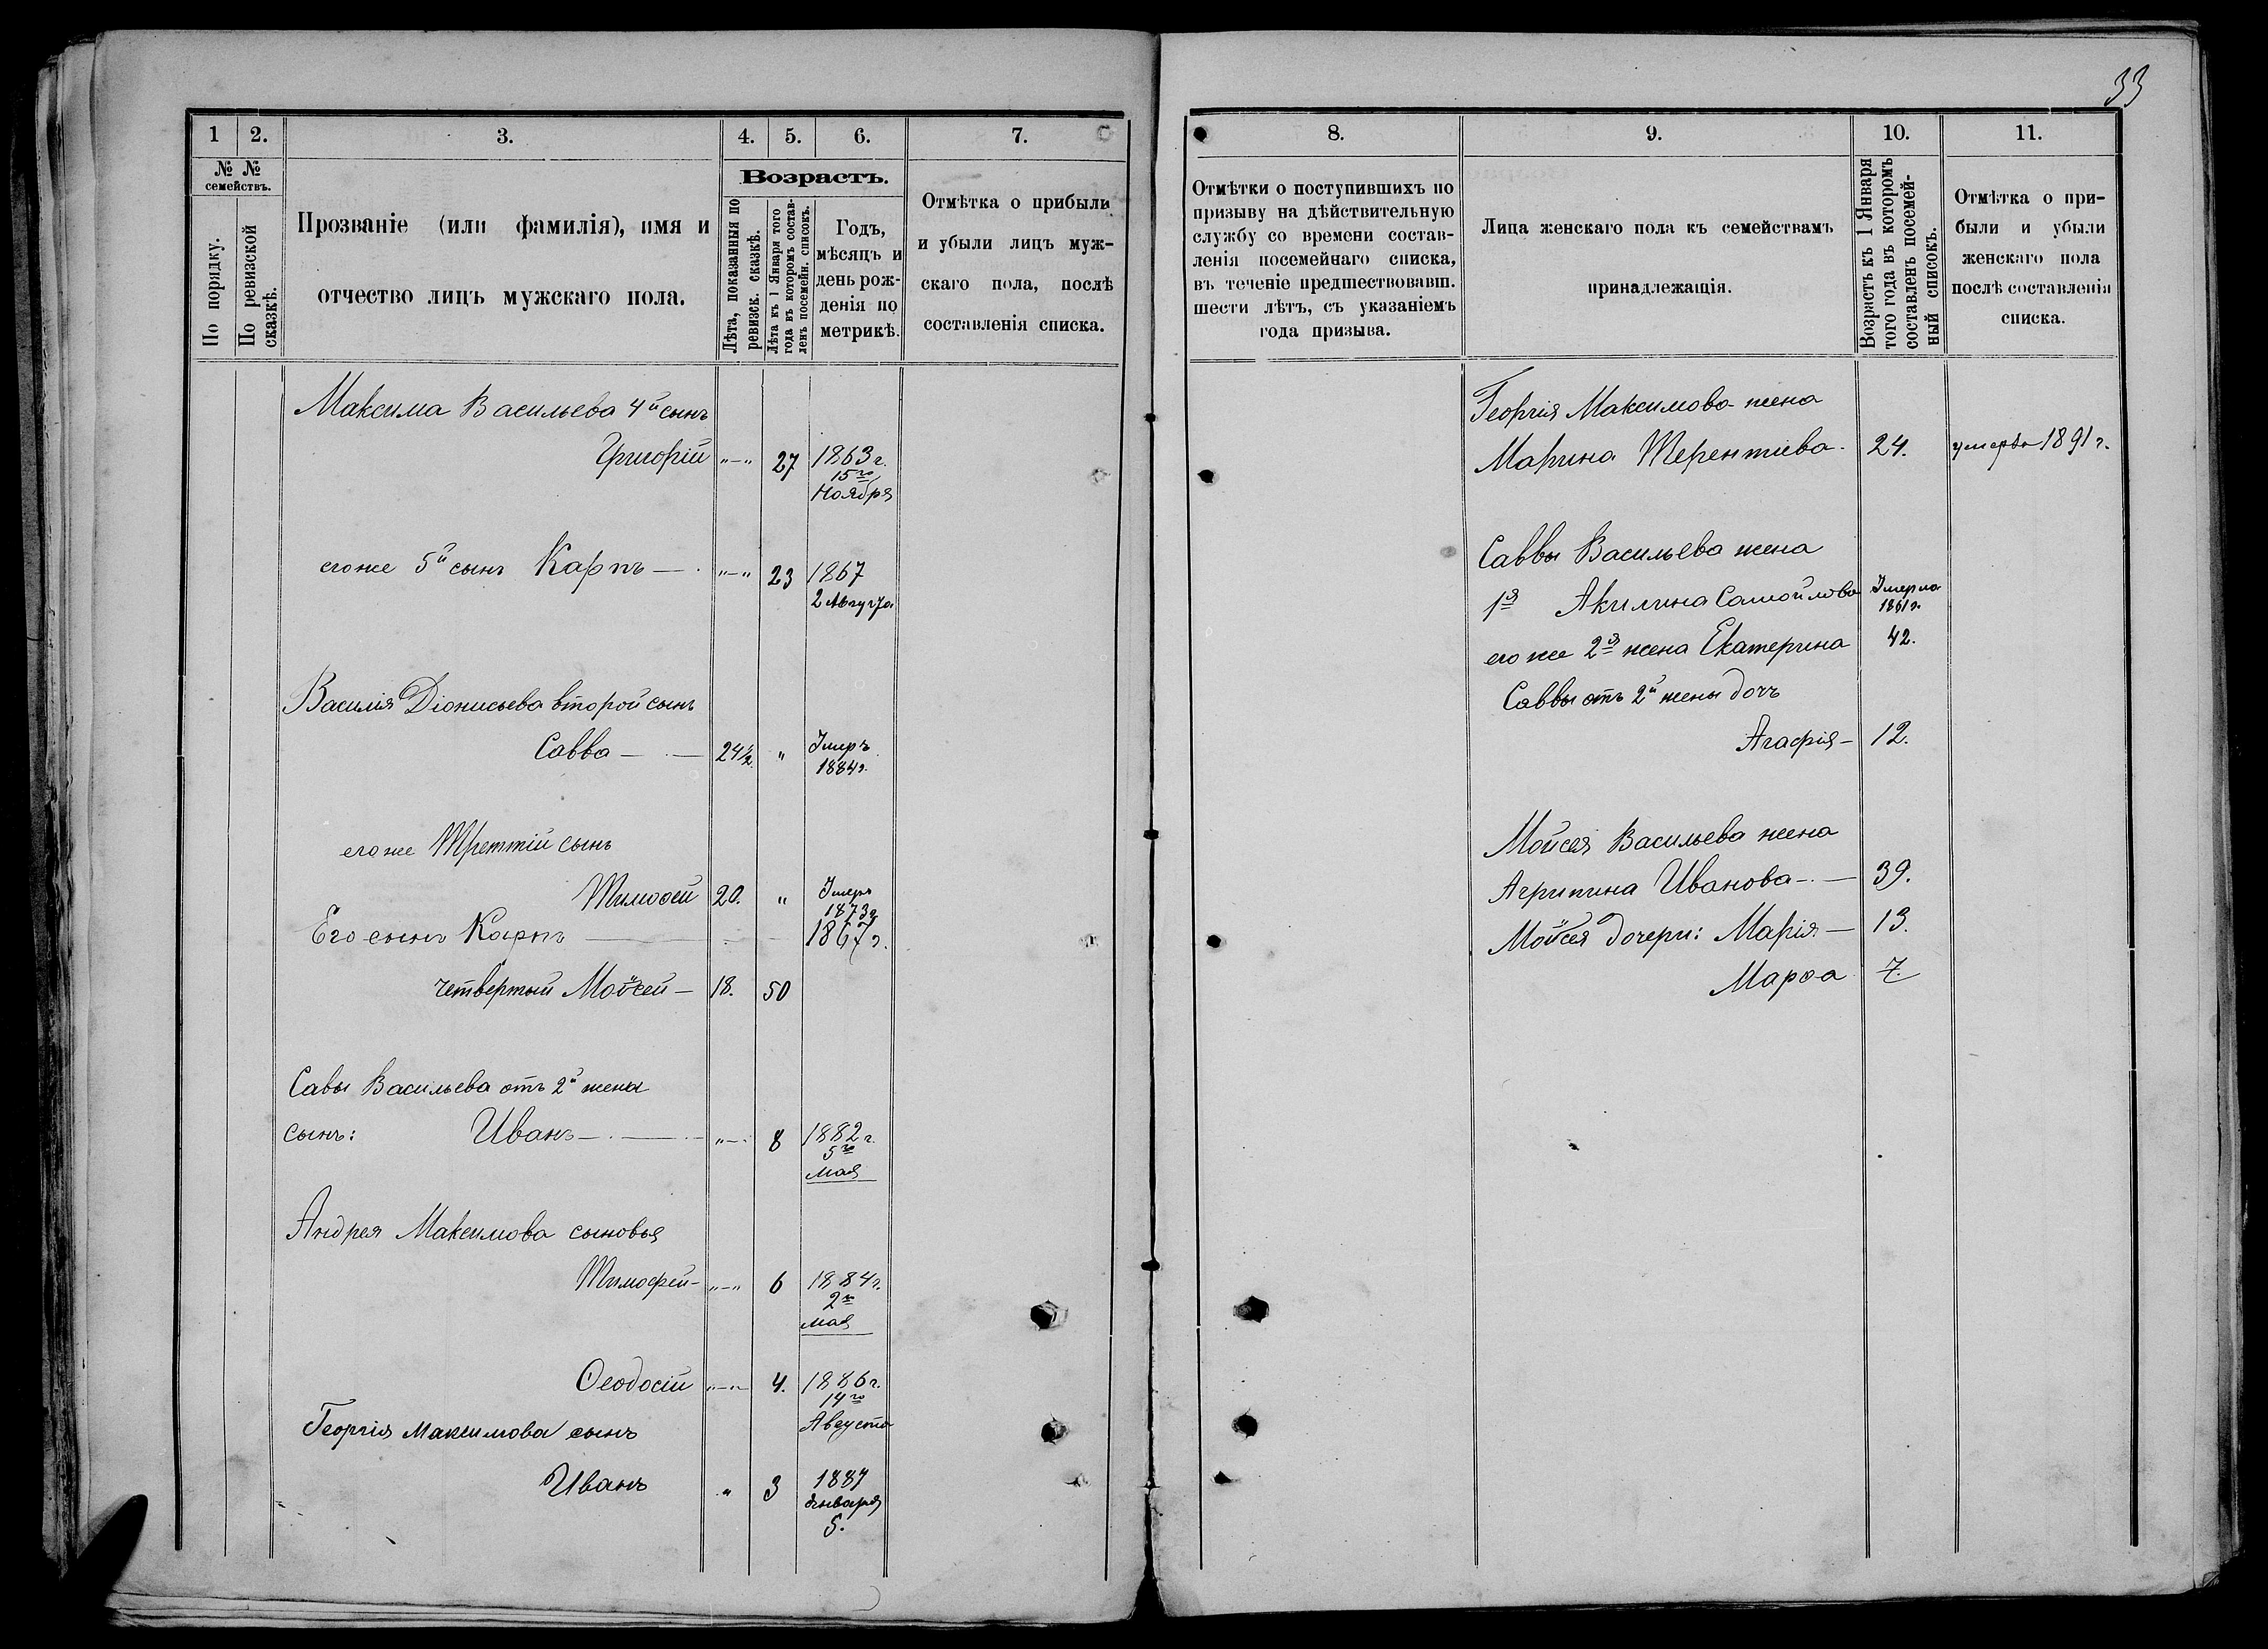 33
1 2. 3. 4. 5. 6. 7.
№ № семействъ.
По порядку.
По ревизской сказкѣ.
Прозваніе (или фамилія), имя и
отчество лицъ мужскаго пола.
Возрастъ.
Лѣта, показанныя по ревизск. сказкѣ.
Лѣта къ 1 Января того года въ которомъ составленъ посемейн. списокъ.
Годъ,
мѣсяцъ и
день рож-
денія по
метрикѣ.
Отмѣтка о прибыли
и убыли лицъ муж-
скаго пола, послѣ
составленія списка.
Максима Васильева 4й сынъ
Григорій „—„ 27 1863 г.
15го
Ноября
его же 5й сынъ Карпъ — „—„ 23 1867
2 Августа
Василія Діонисьева второй сынъ
Савва — — 24½ „ Умеръ
1884 г.
его же Третій сынъ
Тимоѳей 20. „ Умеръ
1873 г.
Его сынъ Карпъ — 1867 г.
четвертый Мойсей — 18. 50
Савы Васильева отъ 2й жены
сынъ: Иванъ — „—„ 8 1882 г.
5го
Мая
Андрея Максимова сыновья
Тимофей — „—„ 6 1884 г.
2го
мая
Ѳеодосій „—„ 4. 1886 г.
14го
Августа
Георгія Максимова сынъ
Иванъ „ 3 1887
января
5.
8. 9. 10. 11.
Отмѣтки о поступившихъ по
призыву на дѣйствительную
службу со времени состав-
ленія посемейнаго списка,
въ теченіе предшествовавш.
шести лѣтъ, съ указаніемъ
года призыва.
Лица женскаго пола къ семействамъ
принадлежащія.
Возрастъ къ 1 Января
того года въ которомъ
составленъ посемей-
ный списокъ.
Отмѣтка о при-
были и убыли
женскаго пола
послѣ составленія
списка.
Георгія Максимова жена
Марина Терентіева — 24. умерла 1891 г.
Саввы Васильева жена
1я Акилина Самойлова Умерла
1861 г.
его же 2я жена Екатерина 42.
Саввы отъ 2й жены дочь
Агафія — 12.
Мойсея Васильева жена
Агрипина Иванова — 39.
Мойсея дочери: Марія — 13.
Марѳа 7.